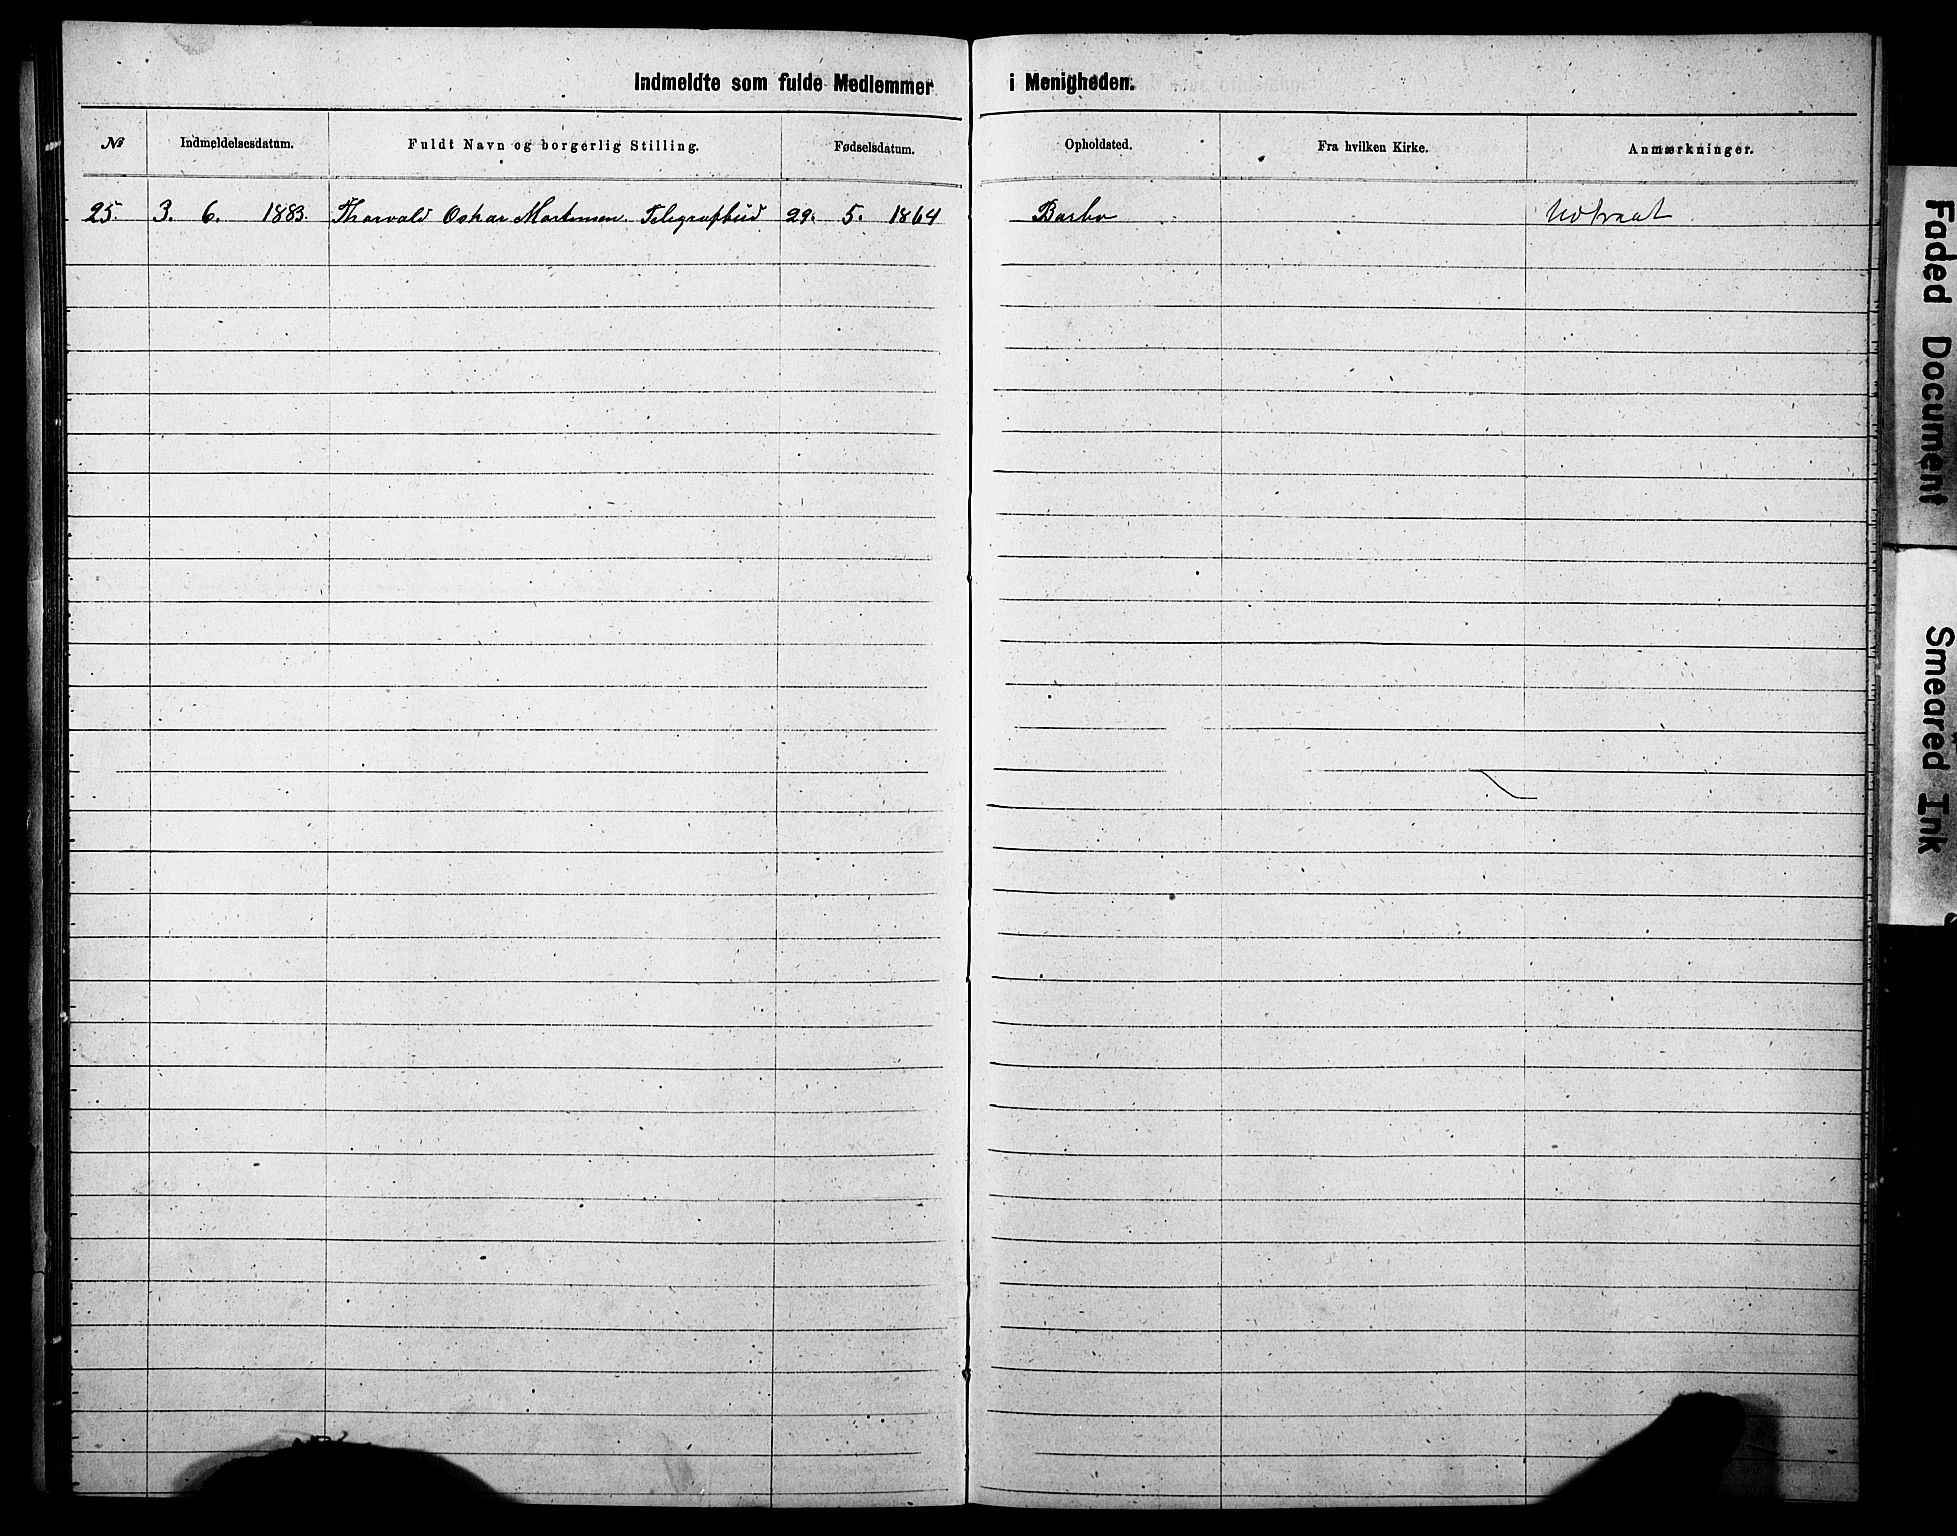 Indmeldte som fulde Medlemmer i Menigheden.
No Indmeldelsesdatum. Fuldt Navn og borgerlig Stilling. Fødselsdatum. Opholdsted. Fra hvilken Kirke. Anmærkninger.
25. 3. 6. 1883. Thorvald Oskar Mortensen. Telegrafbud 29. 5. 1864 Barbo Udtraat
Faded Document
Smeared Ink